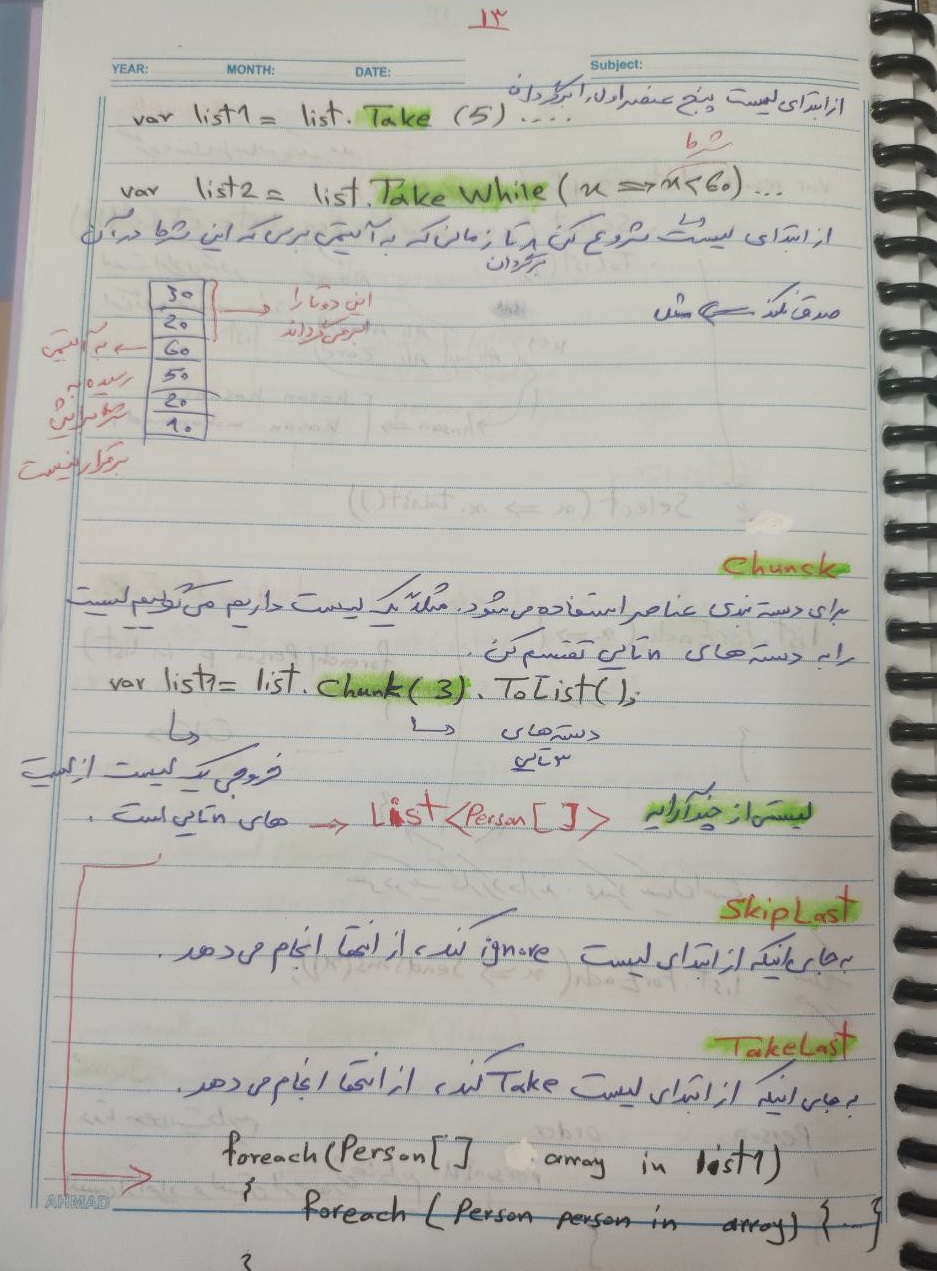 ۱۳
YEAR: MONTH: DATE: Subject:
از ابتدای لیست پنج عنصر اول را برگردان
var list1 = list. Take (5) ....
شرط
var list2 = list. Take While ( x => x < 60) ...
از ابتدای لیست شروع کن و تا زمانی که به آیتمی برسی که این شرط در آن
برگردان
صدق نکند مثل
این دو تا را
برمی‌گرداند
30
20
60
50
20
10
به آیتمی
رسیده به
شرط برایش
برقرار نیست
Chunck
برای دسته بندی عناصر استفاده می‌شود. مثلا یک لیست داریم می‌گوییم لیست
را به دسته های n تایی تقسیم کن.
var list1 = list. Chunk( 3). ToList();
دسته های
۳ تایی
خروجی یک لیست از لیست
های n تایی است. → List <Person [ ]> لیستی از چند آرایه
SkipLast
به جای اینکه از ابتدای لیست ignore کند، از انتها انجام می دهد.
TakeLast
به جای اینکه از ابتدای لیست Take کند، از انتها انجام می دهد.
foreach (Person[ ] array in list1)
{
foreach ( Person person in array) { .... }
}
AHMAD